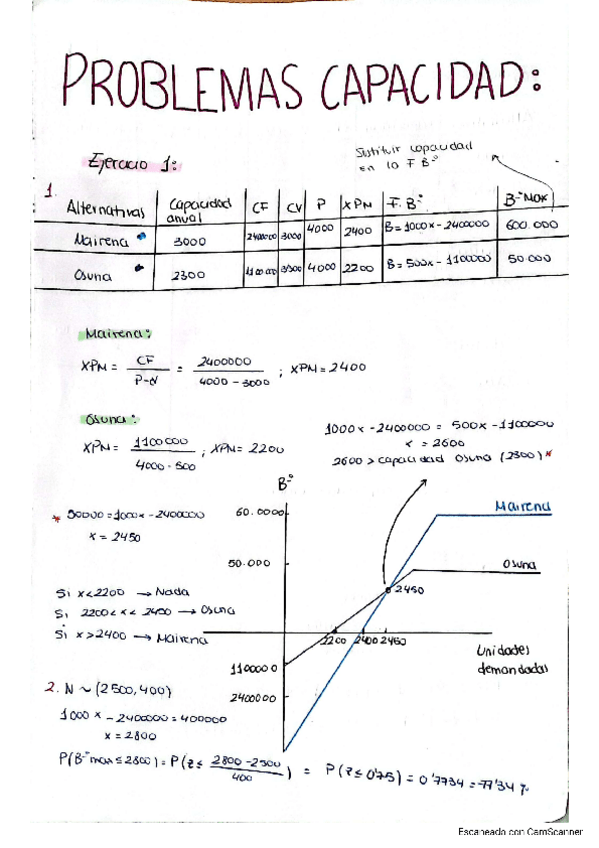 PROBLEMAS CAPACIDAD:
Ejercicio 1:
Sustituir capacidad
en la F Bº
1.
Alternativas Capacidad anual CF CV P XPM F. Bº Bº Max
Mairena 3000 2400000 3000 4000 2400 B=1000x-2400000 600.000
Osuna 2300 1100000 3500 4000 2200 B=500x-1100000 50.000
Mairena:
XPM = CF / P-CV = 2400000 / 4000-3000 ; XPM=2400
Osuna:
XPM = 1100000 / 4000-500 ; XPM=2200
1000x-2400000 = 500x-1100000
x = 2600
2600 > capacidad Osuna (2300)*
Bº
* 50000=1000x-2400000
x = 2450
60.0000
Mairena
50.000
Osuna
2450
Si x<2200 → Nada
Si 2200<x<2450 → Osuna
Si x>2400 → Mairena
2200 2400 2450
Unidades
demandadas
1100000
2400000
2. N ~ (2500,400)
1000x-2400000=400000
x = 2800
P(Bº max ≤ 2800) = P(z ≤ 2800-2500 / 400) = P(z≤0'75) = 0'7734 = 77'34 %
Escaneado con CamScanner